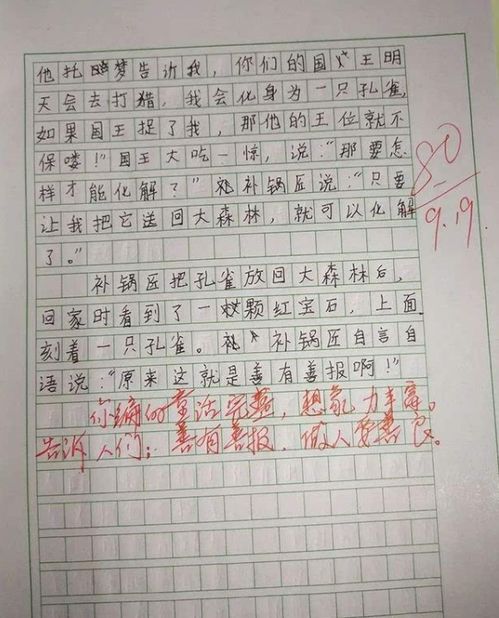 他托梦告诉我，你们的国王明
天会去打猎，我会化身为一只孔雀，
如果国王捉了我，那他的王位就不
保喽！”国王大吃一惊，说：“那要怎
样才能化解？”补锅匠说：“只要
让我把它送回大森林，就可以化解
了。”
80
9.19
补锅匠把孔雀放回大森林后，
回家时看到了一颗红宝石，上面
刻着一只孔雀。补锅匠自言自
语说：“原来这就是善有善报啊！”
你编的童话完整，想象力丰富。
告诉人们：善有善报，做人要善良。